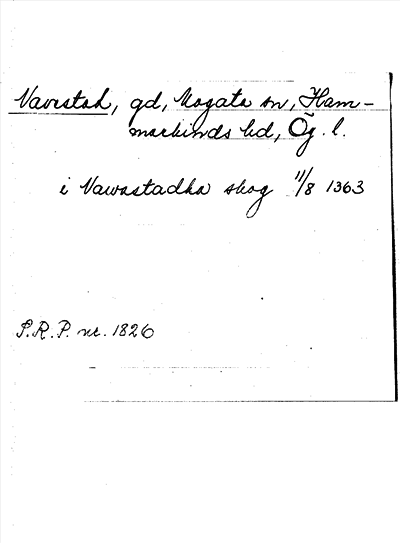 Vavrstad, gd, Mogata sn, Ham-
markinds hd, Ög. l.
i Vawastadha skog 11/8 1363
S.R.P. nr. 1826